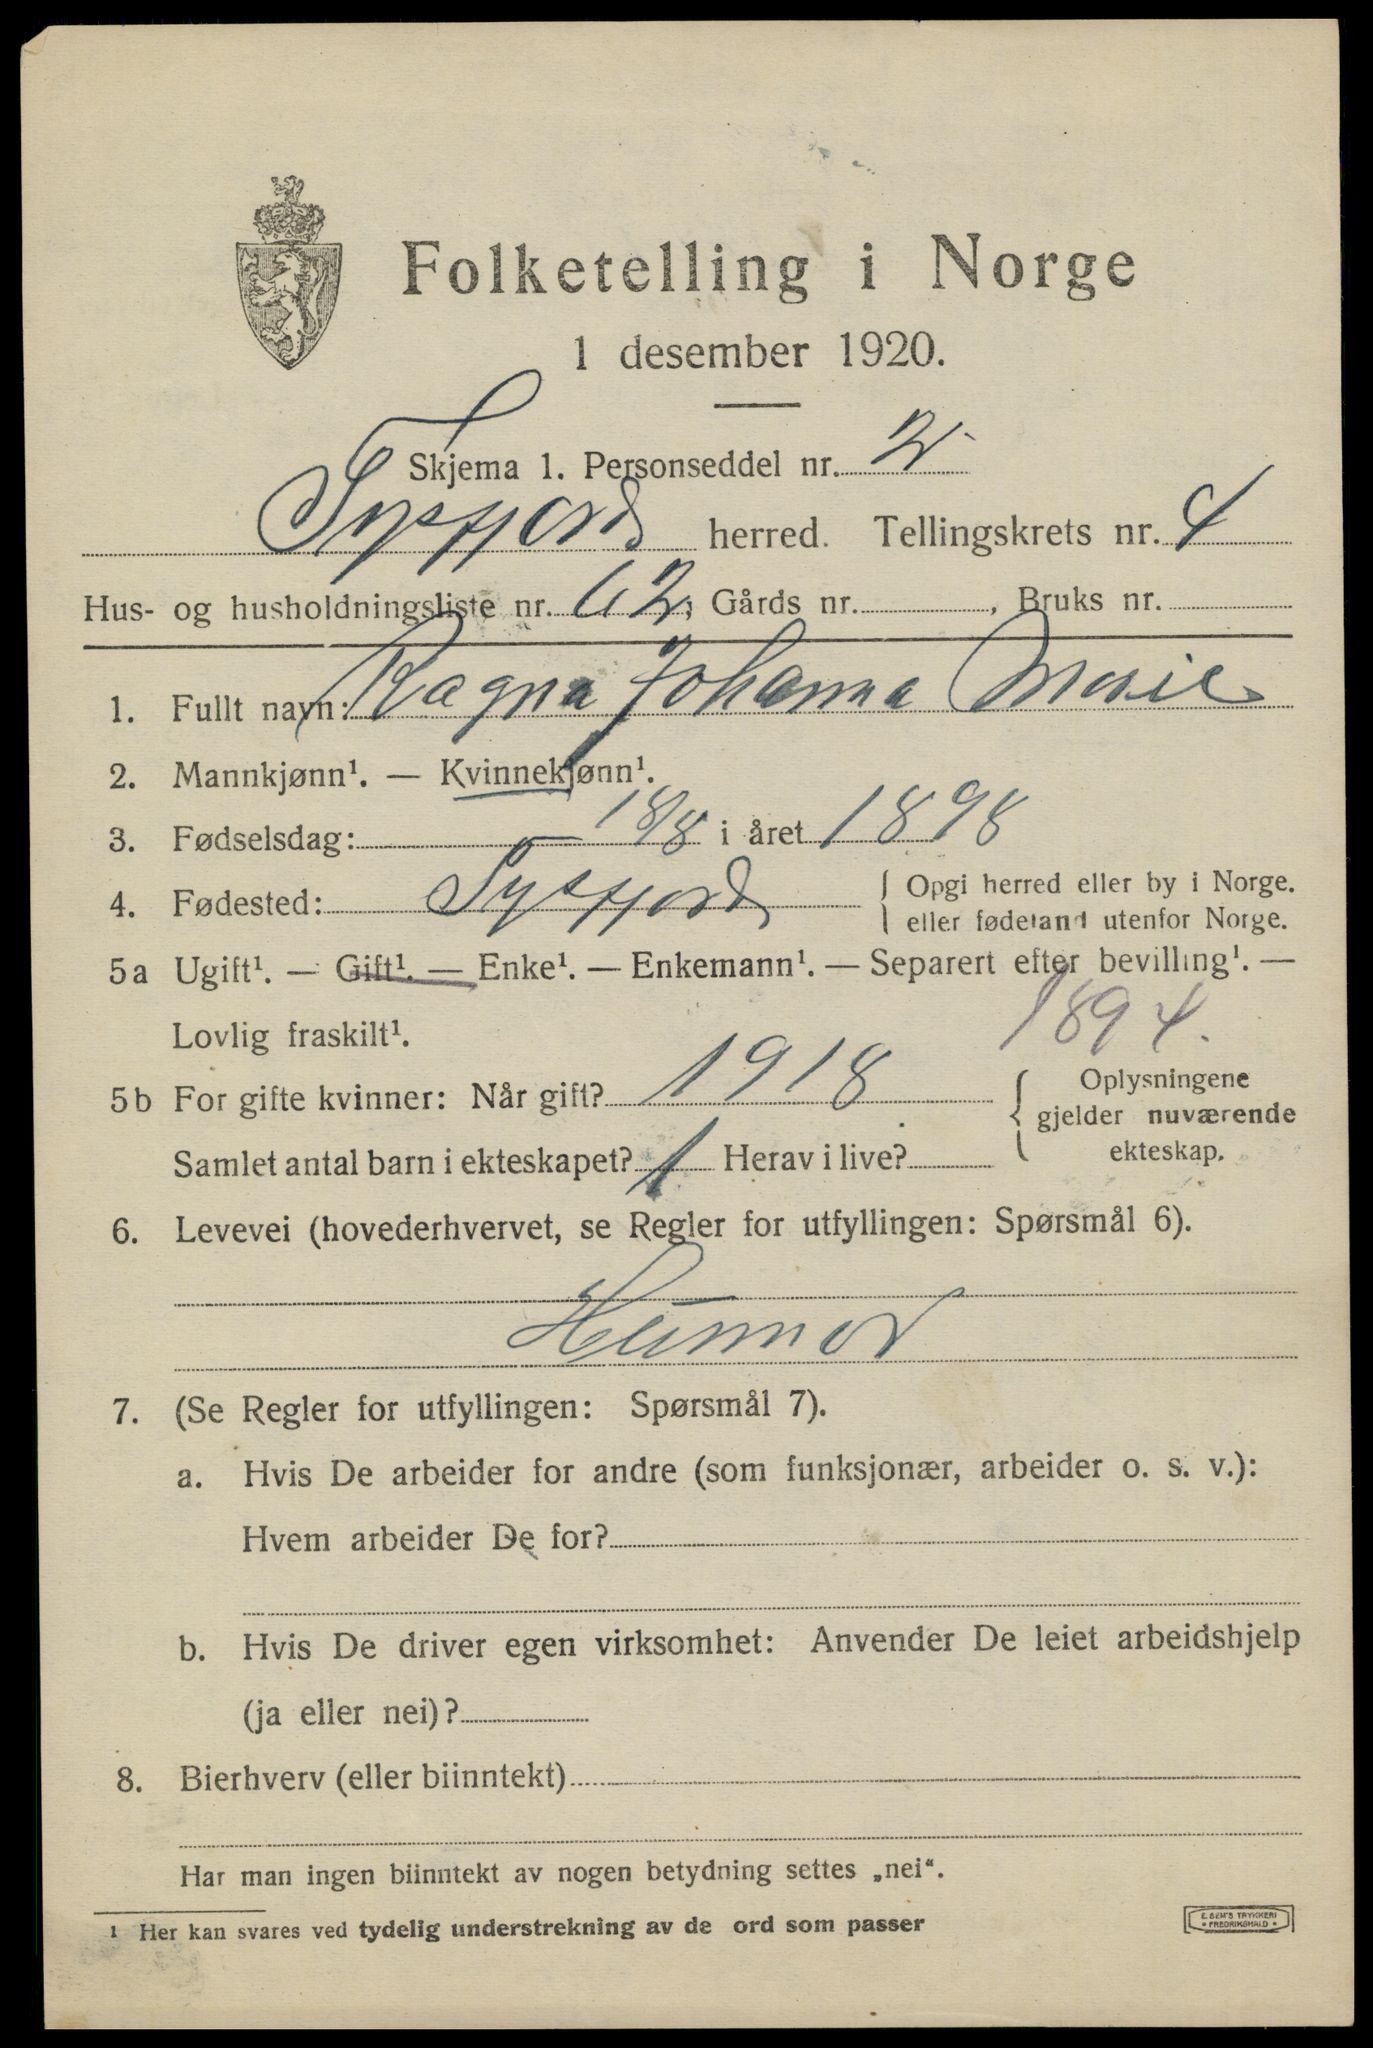 Folketelling i Norge
1 desember 1920.
Skjema 1. Personseddel nr. 2
Tysfjord herred. Tellingskrets nr. 4
Hus- og husholdningsliste nr. 62, Gårds nr. , Bruks nr.
1. Fullt navn: Ragna Johanna Marie
2. Mannkjønn¹. — Kvinnekjønn¹.
3. Fødselsdag: 18/8 i året 1898
4. Fødested: Tysfjord { Opgi herred eller by i Norge.
eller fødeland utenfor Norge.
5a Ugift¹. — Gift¹. — Enke¹. — Enkemann¹. — Separert efter bevilling¹. —
Lovlig fraskilt¹. 1894.
5b For gifte kvinner: Når gift? 1918 { Oplysningene
gjelder nuværende
Samlet antal barn i ekteskapet? 1 Herav i live? ekteskap.
6. Levevei (hovederhvervet, se Regler for utfyllingen: Spørsmål 6).
Husmor
7. (Se Regler for utfyllingen: Spørsmål 7).
a. Hvis De arbeider for andre (som funksjonær, arbeider o. s. v.):
Hvem arbeider De for?
b. Hvis De driver egen virksomhet: Anvender De leiet arbeidshjelp
(ja eller nei)?
8. Bierhverv (eller biinntekt)
Har man ingen biinntekt av nogen betydning settes „nei“.
¹ Her kan svares ved tydelig understrekning av de ord som passer
E. SEM'S TRYKKERI
• FREDRIKSHALD •